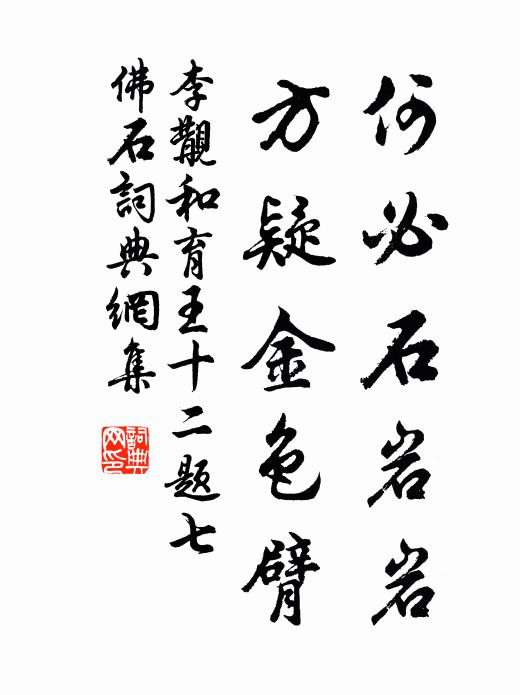 何必石岩岩
方疑金色臂
李覯和育王十二題七
佛石詞典網集
詞典网印